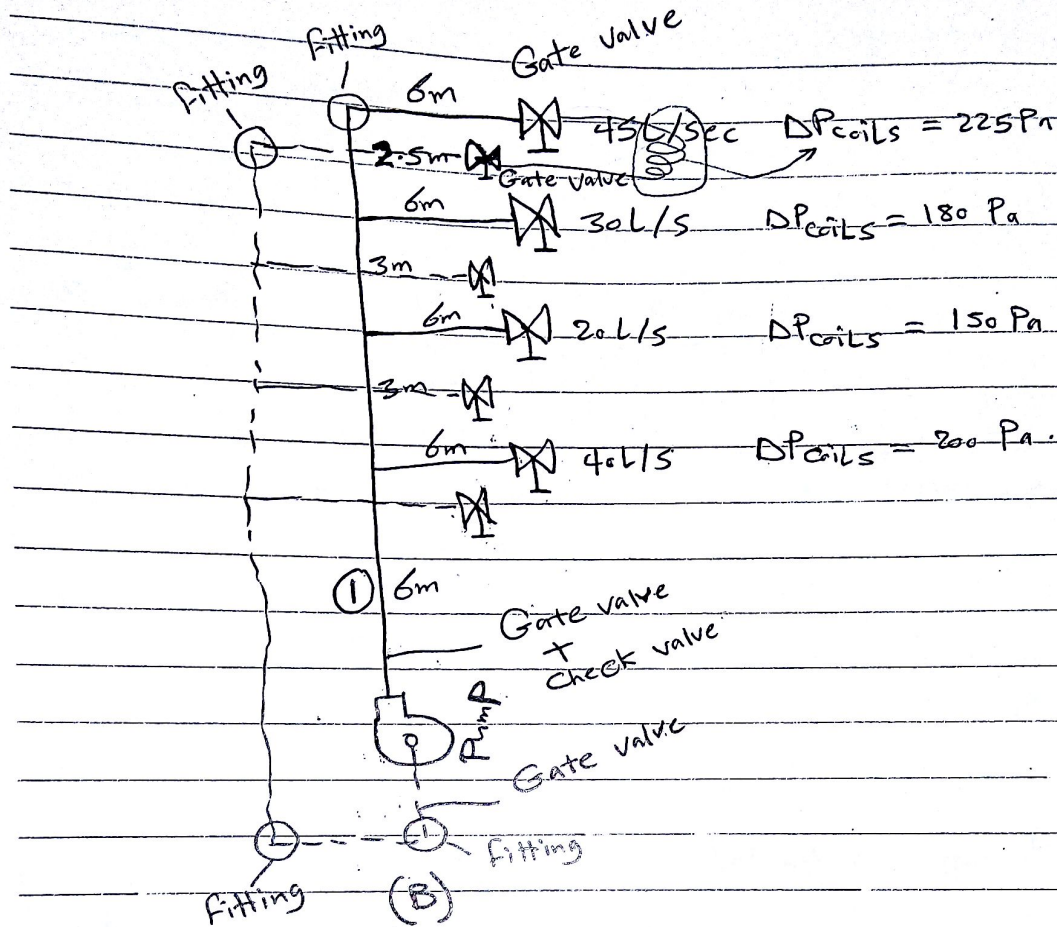 Fitting
Fitting
Gate valve
6m
45L/sec ΔPcoils = 225 Pa
2.5m
Gate valve
6m
30L/S ΔPcoiLS = 180 Pa
3m
6m
20L/S ΔPcoiLS = 150 Pa
3m
6m
40L/S ΔPcoiLS = 200 Pa.
1
6m
Gate valve
+
check valve
Pump
Gate valve
1
fitting
Fitting
(B)